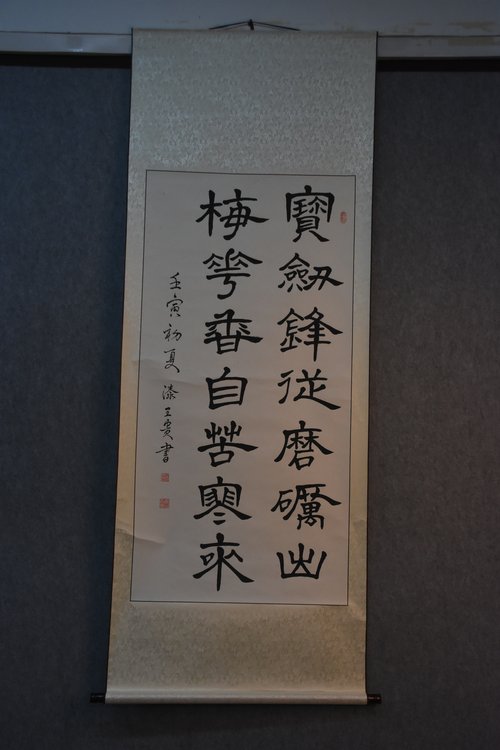 寶劔鋒從磨礪出
梅花香自苦寒來
壬寅初夏漆王賓書